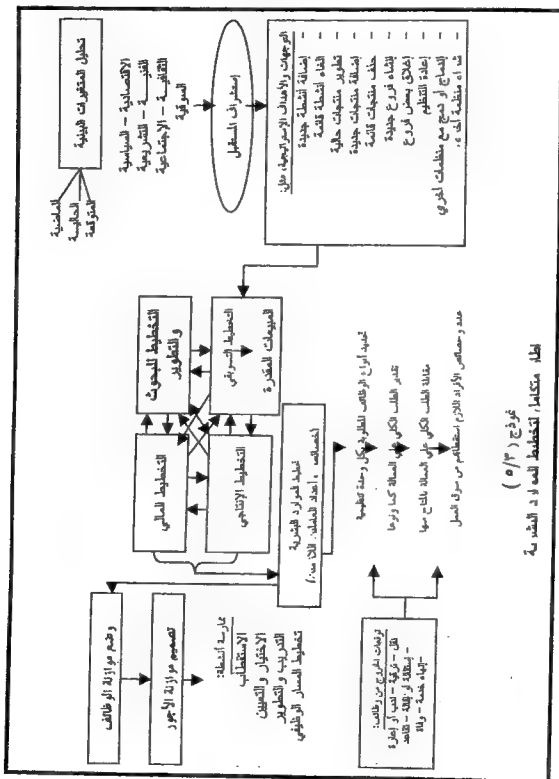 تحليل المتغيرات البيئية
الماضية
الحالية
المتوقعة
الاقتصادية – السياسية
الفنية – التشريعية
الثقافية – الاجتماعية
السوقية
إستشراف المستقبل
التوجهات والأهداف الإستراتيجية، مثل:
– إضافة أنشطة جديدة
– الغاء أنشطة قائمة
– تطوير منتجات حالية
– إضافة منتجات جديدة
– حذف منتجات قائمة
– إنشاء فروع جديدة
– إغلاق بعض فروع
– إعادة التنظيم
– اندماج أو دمج مع منظمات أخرى
– شراء منظمة أخرى.
التخطيط للبحوث
والتطوير
المبيعات المقدرة
التخطيط التسويقي
التخطيط المالي
التخطيط الإنتاجي
تخطيط الموارد البشرية
(خصائص وأعداد العاملين اللازمين)
تحديد أنواع الوظائف المطلوبة بكل وحدة تنظيمية
تقدير الطلب الكلي على العمالة كما ونوعا
مقابلة الطلب الكلي على العمالة بالمتاح منها
عدد وخصائص الأفراد اللازم استقطابهم من سوق العمل
توقعات الخروج من وظائف:
نقل – ترقية – ندب أو إعارة
– إستقالة أو إقالة – تقاعد
– إنهاء خدمة – وفاة
وضع موازنة الوظائف
تصميم موازنة الأجور
ممارسة أنشطة:
الاستقطاب
الاختيار والتعيين
التدريب والتطوير
تخطيط المسار الوظيفي
نموذج (٥/٣)
إطار متكامل لتخطيط الموارد البشرية